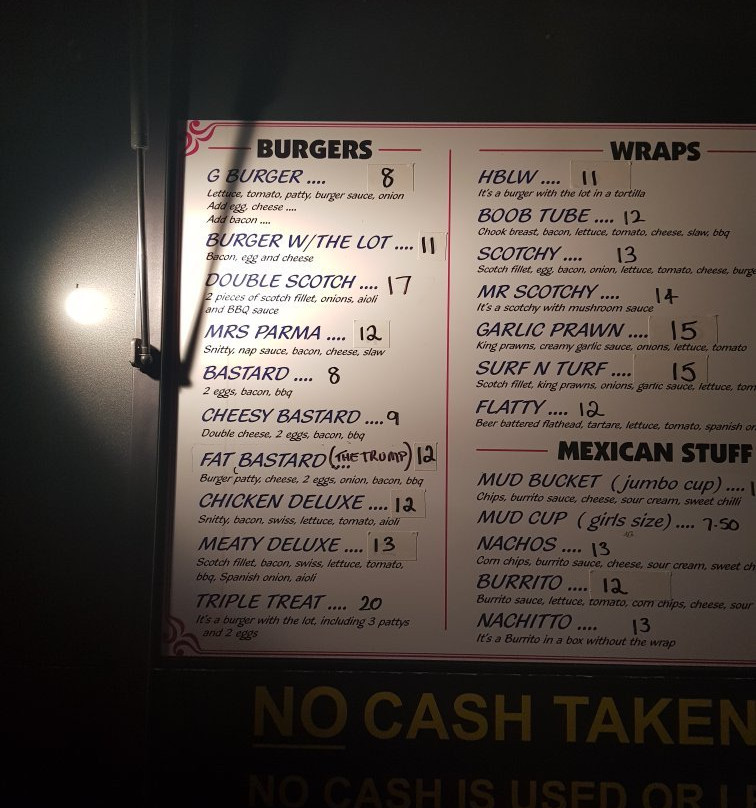 BURGERS
G BURGER .... 8
Lettuce, tomato, patty, burger sauce, onion
Add egg, cheese ....
Add bacon ....
BURGER W/THE LOT .... 11
Bacon, egg and cheese
DOUBLE SCOTCH .... 17
2 pieces of scotch fillet, onions, aioli
and BBQ sauce
MRS PARMA .... 12
Snitty, nap sauce, bacon, cheese, slaw
BASTARD .... 8
2 eggs, bacon, bbq
CHEESY BASTARD .... 9
Double cheese, 2 eggs, bacon, bbq
FAT BASTARD (THE TRUMP) 12
Burger patty, cheese, 2 eggs, onion, bacon, bbq
CHICKEN DELUXE .... 12
Snitty, bacon, swiss, lettuce, tomato, aioli
MEATY DELUXE .... 13
Scotch fillet, bacon, swiss, lettuce, tomato,
bbq, Spanish onion, aioli
TRIPLE TREAT .... 20
It's a burger with the lot, including 3 pattys
and 2 eggs
WRAPS
HBLW .... 11
It's a burger with the lot in a tortilla
BOOB TUBE .... 12
Chook breast, bacon, lettuce, tomato, cheese, slaw, bbq
SCOTCHY .... 13
Scotch fillet, egg, bacon, onion, lettuce, tomato, cheese, burge
MR SCOTCHY .... 14
It's a scotchy with mushroom sauce
GARLIC PRAWN .... 15
King prawns, creamy garlic sauce, onions, lettuce, tomato
SURF N TURF .... 15
Scotch fillet, king prawns, onions, garlic sauce, lettuce, tom
FLATTY .... 12
Beer battered flathead, tartare, lettuce, tomato, spanish on
MEXICAN STUFF
MUD BUCKET (jumbo cup) ....
Chips, burrito sauce, cheese, sour cream, sweet chilli
MUD CUP (girls size) .... 7.50
NACHOS .... 13
Corn chips, burrito sauce, cheese, sour cream, sweet ch
BURRITO .... 12
Burrito sauce, lettuce, tomato, corn chips, cheese, sour
NACHITTO .... 13
It's a Burrito in a box without the wrap
NO CASH TAKEN
NO CASH IS USED OR